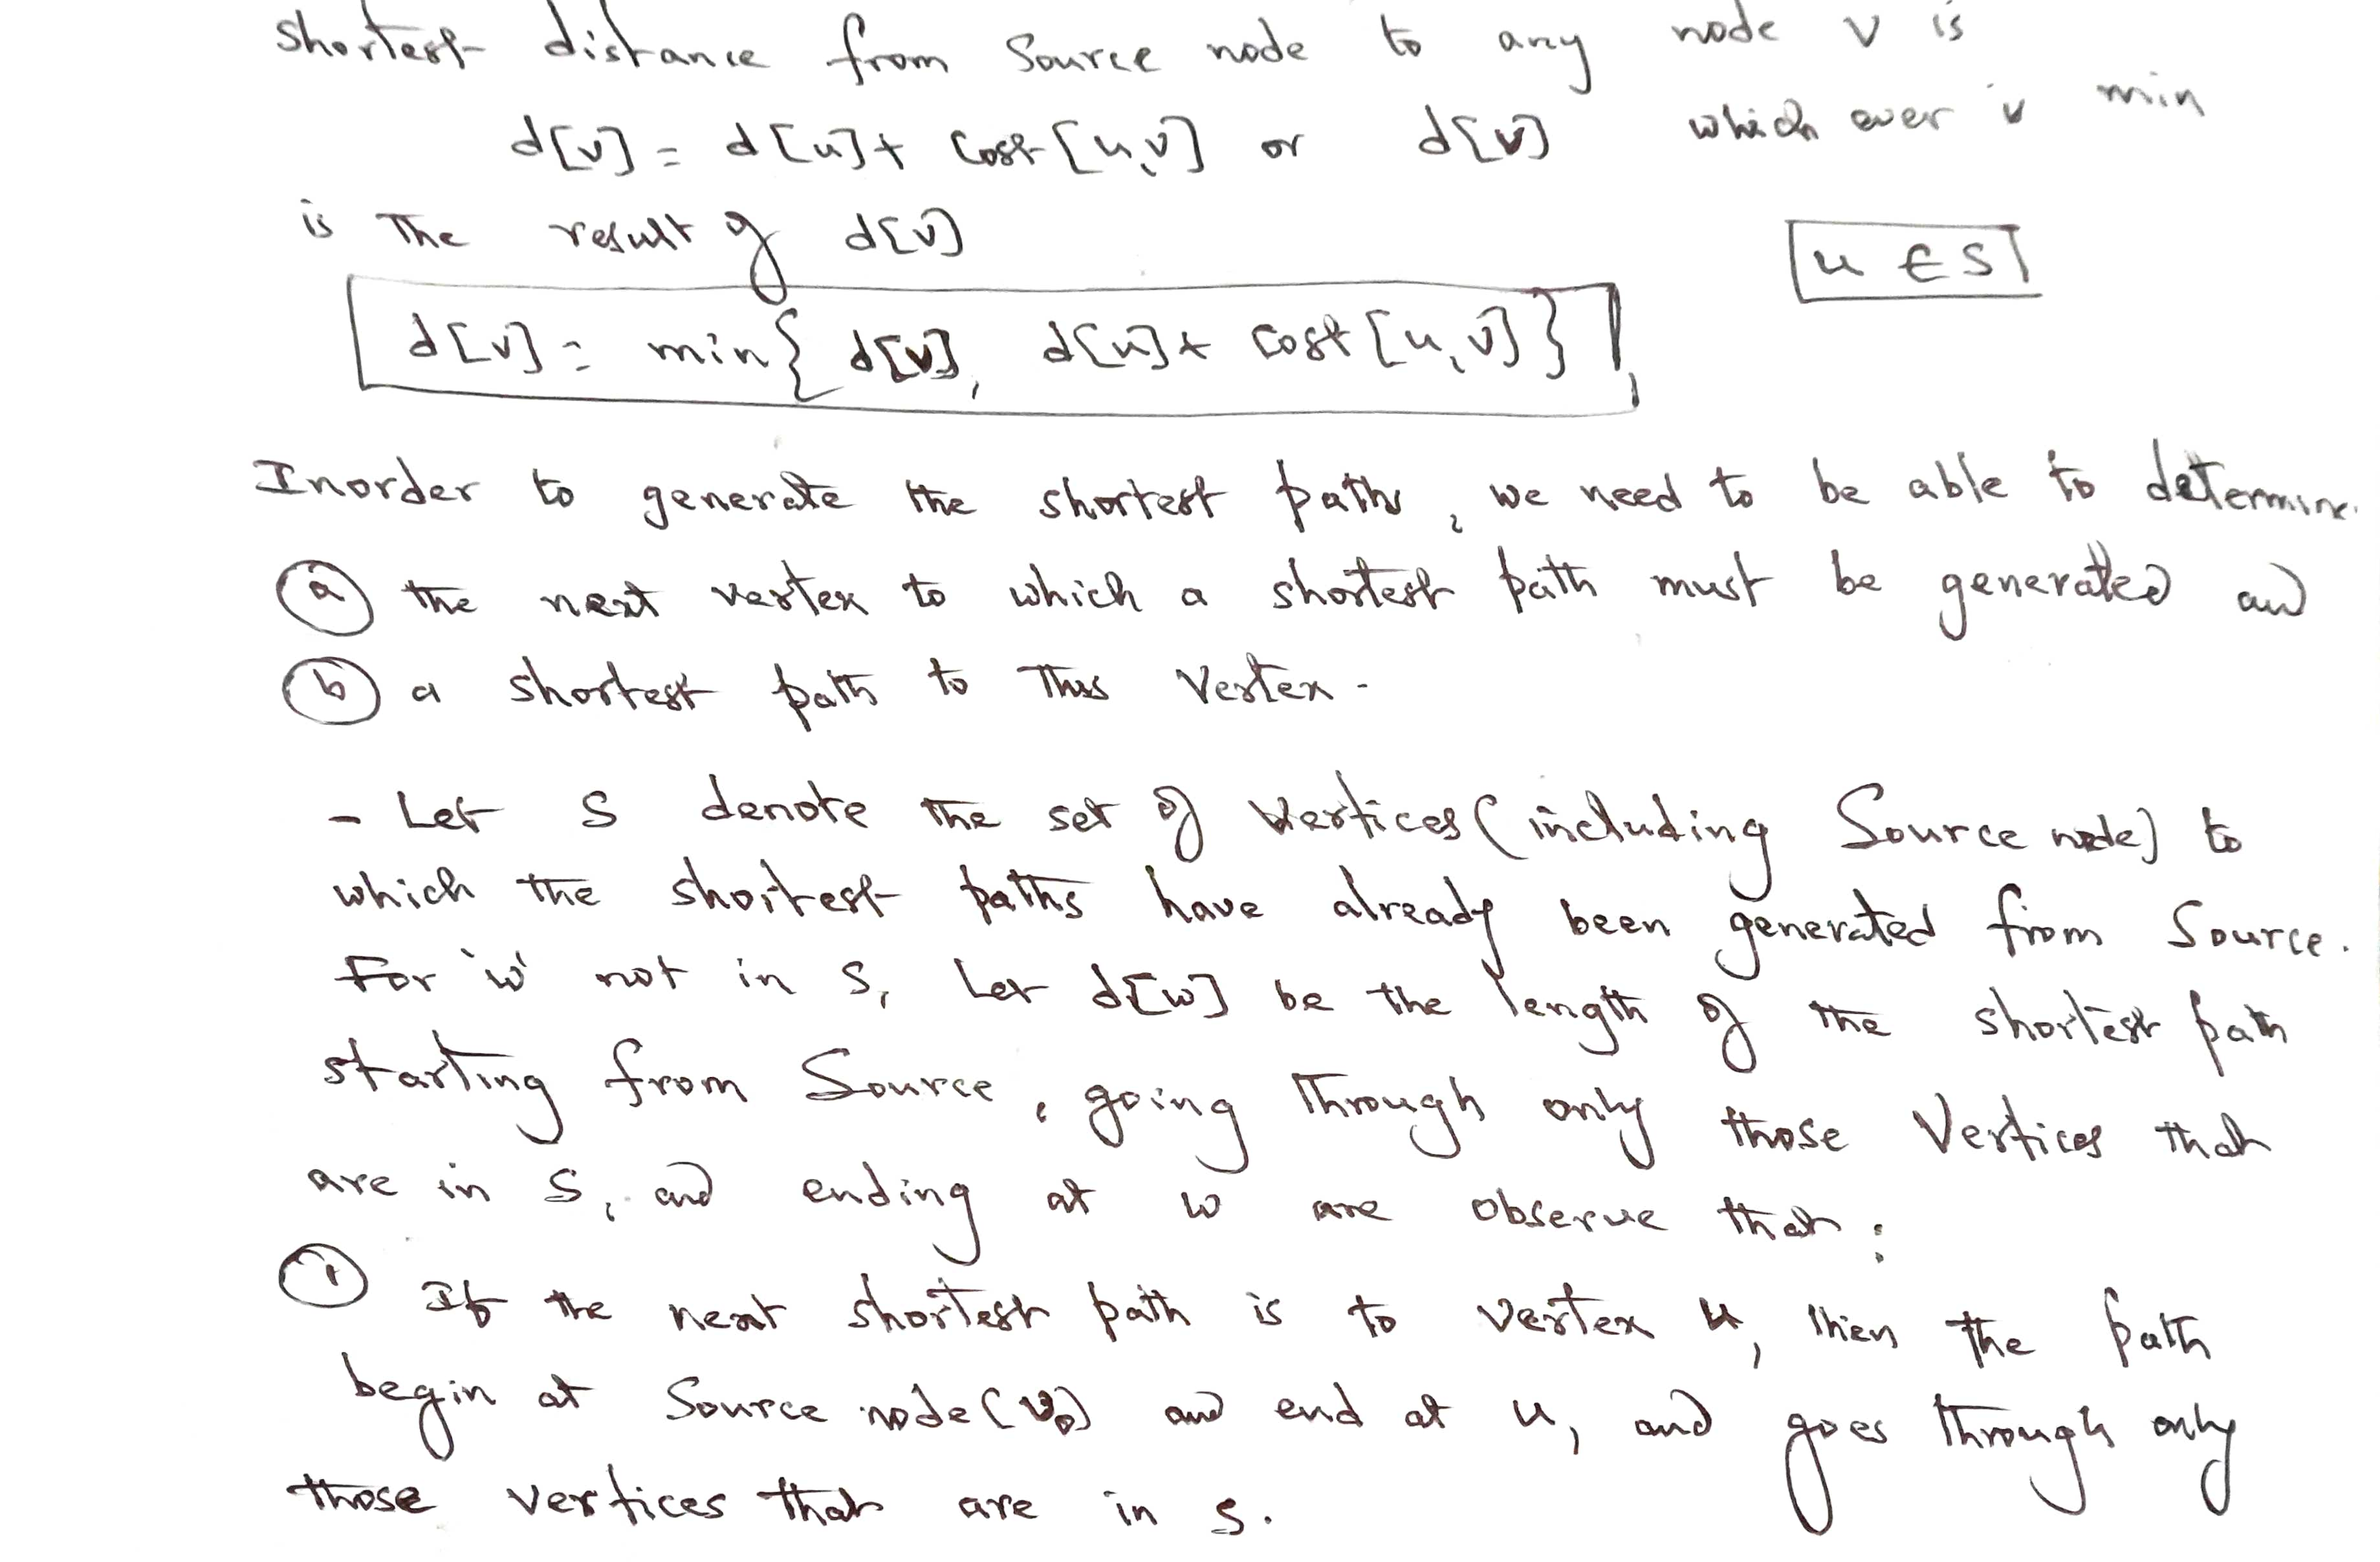 shortest distance from Source node to any node v is
d[v] = d[u] + Cost[u,v] or d[v] which ever is min
is the result of d[v]
u ∈ S
d[v] = min{ d[v], d[u] + Cost[u,v] },
Inorder to generate the shortest paths, we need to be able to determine.
(a) the next vertex to which a shortest path must be generated and
(b) a shortest path to this vertex.
- Let S denote the set of vertices (including Source node) to
which the shortest paths have already been generated from Source.
For 'w' not in S, Let d[w] be the length of the shortest path
starting from Source, going through only those vertices that
are in S, and ending at w are observe that:
(1) If the next shortest path is to vertex u, then the path
begin at Source node (v0) and end at u, and goes through only
those vertices that are in S.